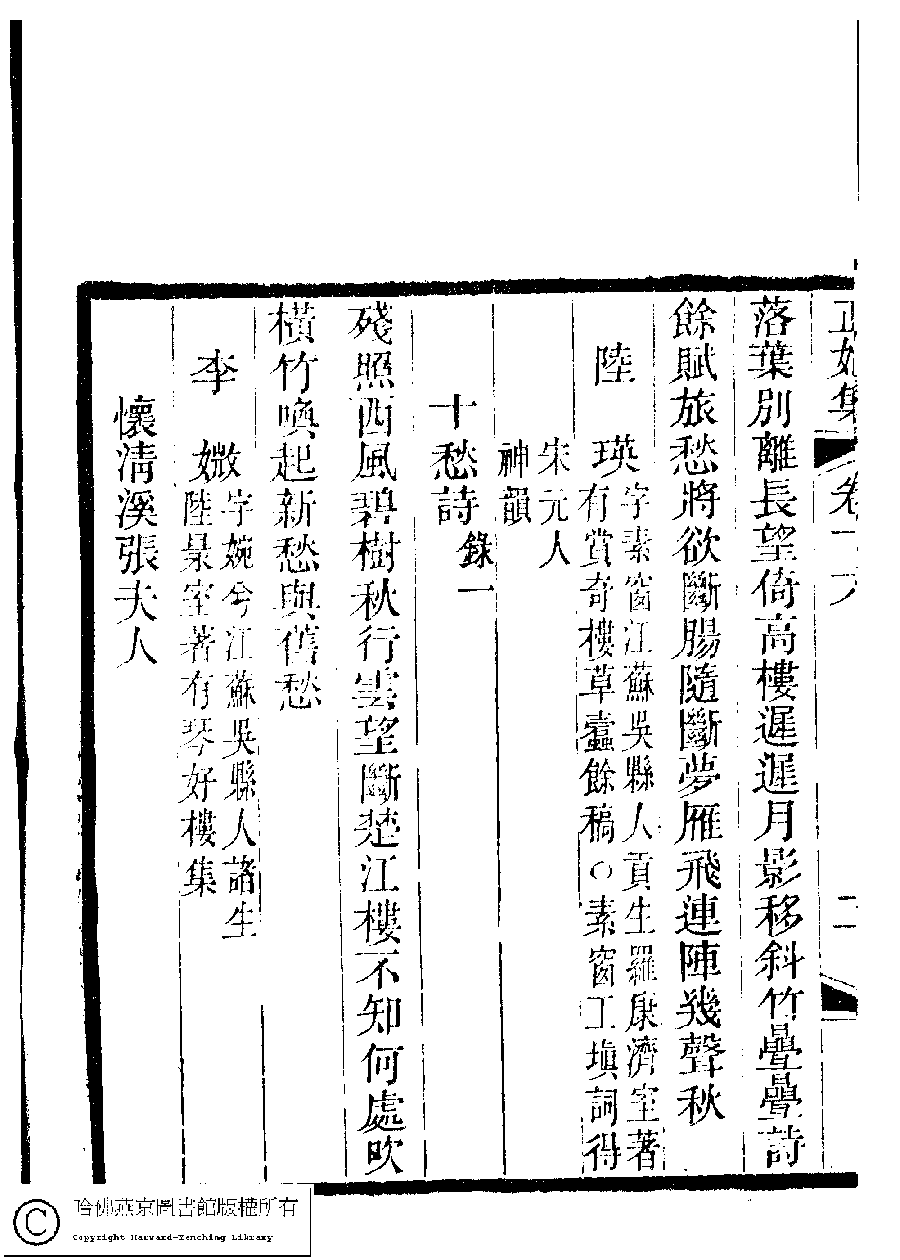 正始集 卷十六 二
落葉別離長望倚高樓遲遲月影移斜竹疊疊詩
餘賦旅愁將欲斷腸隨斷夢雁飛連陣幾聲秋
陸 瑛 字素窗江蘇吳縣人貢生羅康濟室著
有賞奇樓草蠹餘稿○素窗工塡詞得
宋元人
神韻
十愁詩 錄一
殘照西風碧樹秋行雲望斷楚江樓不知何處吹
橫竹喚起新愁與舊愁
李 媺 字婉兮江蘇吳縣人諸生
陸昊室著有琴好樓集
懷清溪張夫人
哈佛燕京圖書館版權所有
Copyright Harvard-Yenching Library